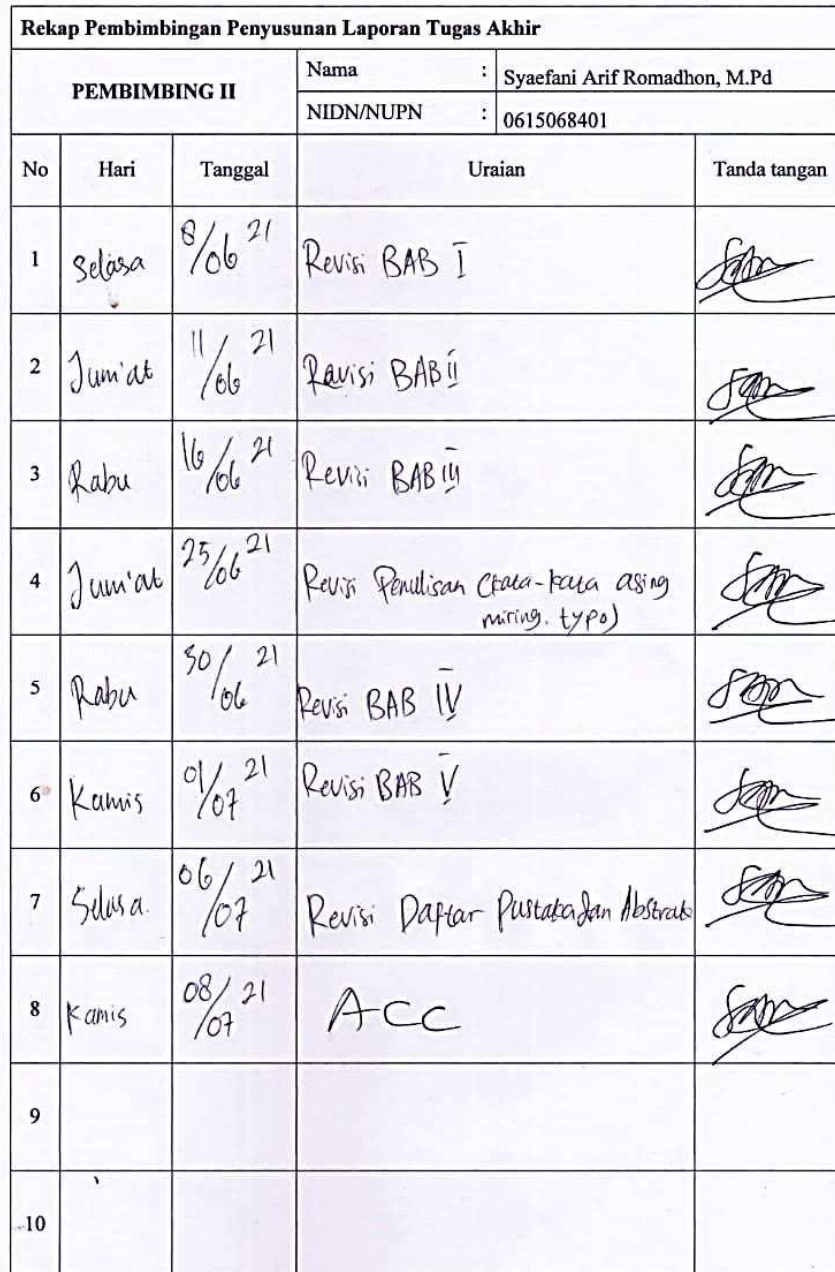 Rekap Pembimbingan Penyusunan Laporan Tugas Akhir
PEMBIMBING II
Nama : Syaefani Arif Romadhon, M.Pd
NIDN/NUPN : 0615068401
No Hari Tanggal Uraian Tanda tangan
1 Selasa 8/06 21 Revisi BAB I
2 Jum'at 11/06 21 Ravisi BAB II
3 Rabu 16/06 21 Revisi BAB III
4 Jum'at 25/06 21 Revisi Penulisan (kata-kata asing
miring. typo)
5 Rabu 30/06 21 Revisi BAB IV
6 Kamis 01/07 21 Revisi BAB V
7 Selasa. 06/07 21 Revisi Daftar Pustaka dan Abstrak
8 Kamis 08/07 21 ACC
9
10